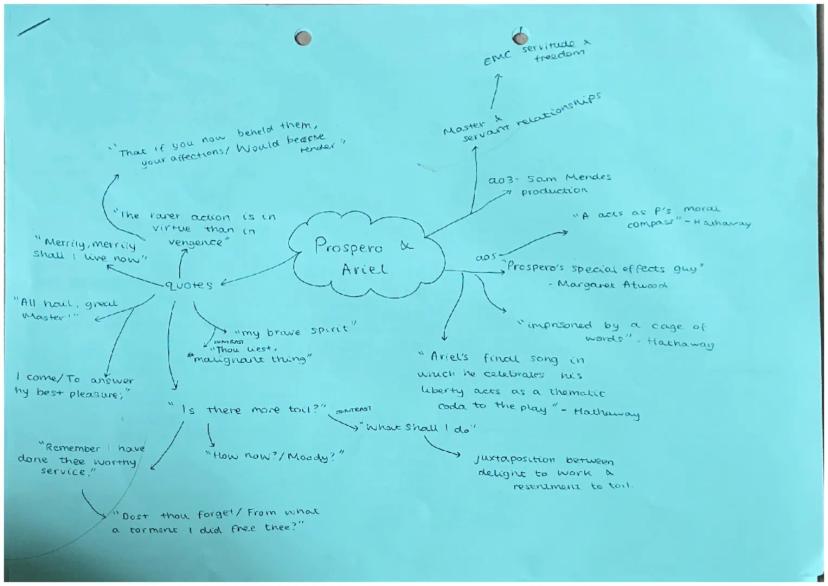 EMC servitude &
freedom
Master &
servant relationships
ao3- Sam Mendes
production
"A acts as P's moral
compass" - Hathaway
ao5-
"Prospero's special effects guy"
- Margaret Atwood
"imprisoned by a cage of
words" - Hathaway
"Ariel's final song in
which he celebrates his
liberty acts as a thematic
coda to the play" - Hathaway
Prospero &
Ariel
quotes
"That if you now beheld them,
your affections/ Would become
tender"
"The rarer action is in
virtue than in
vengence"
"Merrily, merrily
shall I live now"
"All hail, great
Master!"
I come/To answer
thy best pleasure;"
"my brave spirit"
CONTRAST
"Thou liest,
malignant thing"
"Is there more toil?"
CONTRAST
"What shall I do"
juxtaposition between
delight to work &
resentment to toil.
"How now?/Moody?"
"Remember I have
done thee worthy
service."
"Dost thou forget/ From what
a torment I did free thee?"